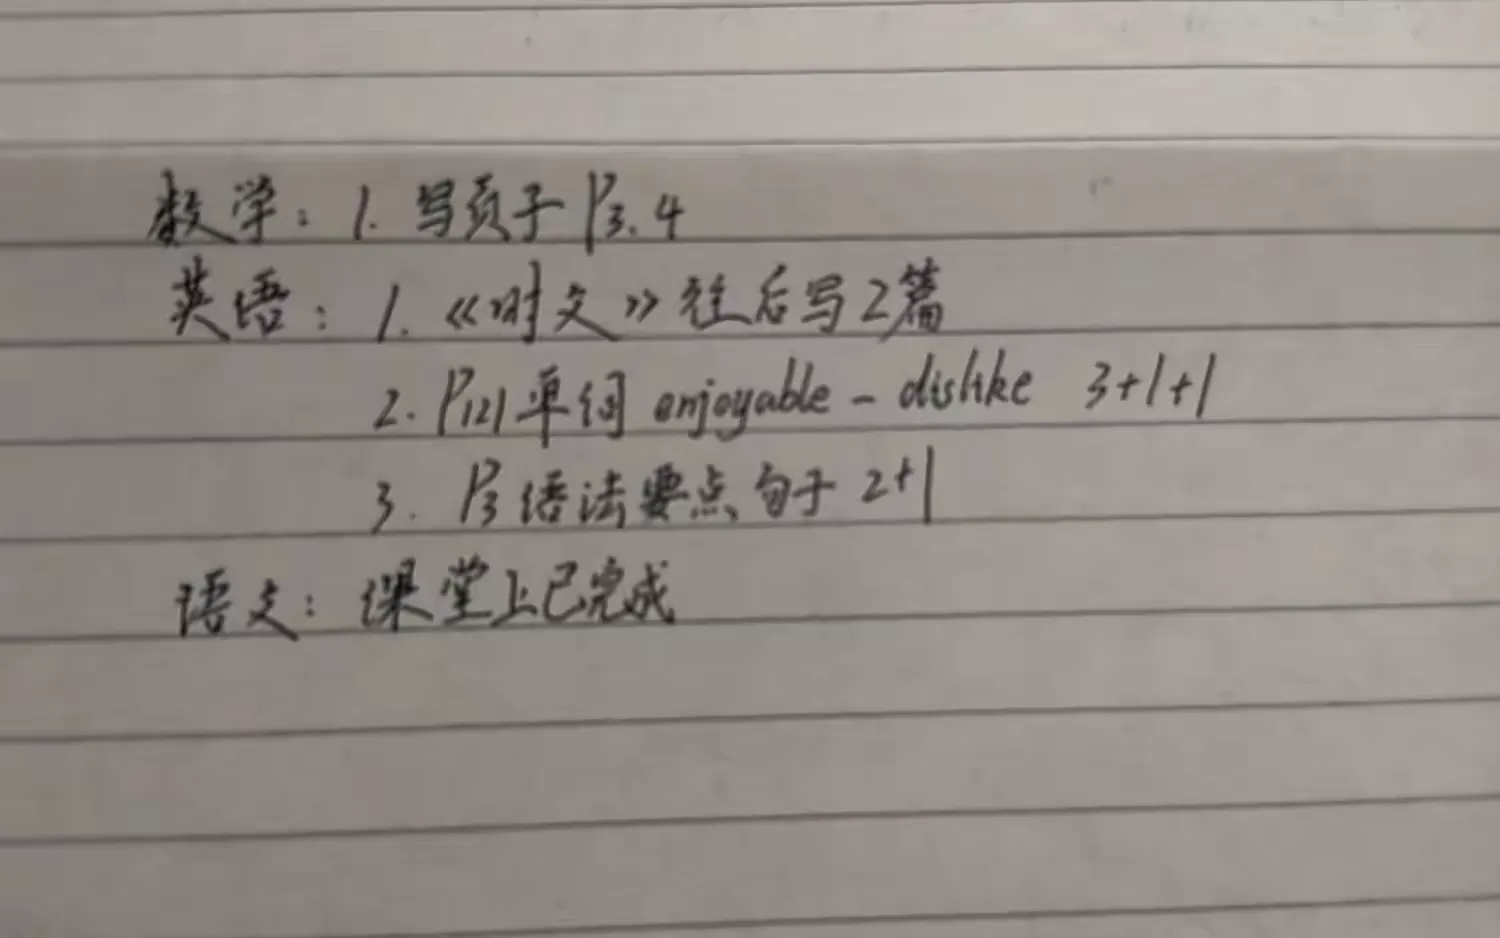 数学：1. 写页子 P3.4
英语：1.《时文》往后写2篇
2. P121单词 enjoyable - dislike 3+1+1
3. P3 语法要点句子 2+1
语文：课堂上已完成